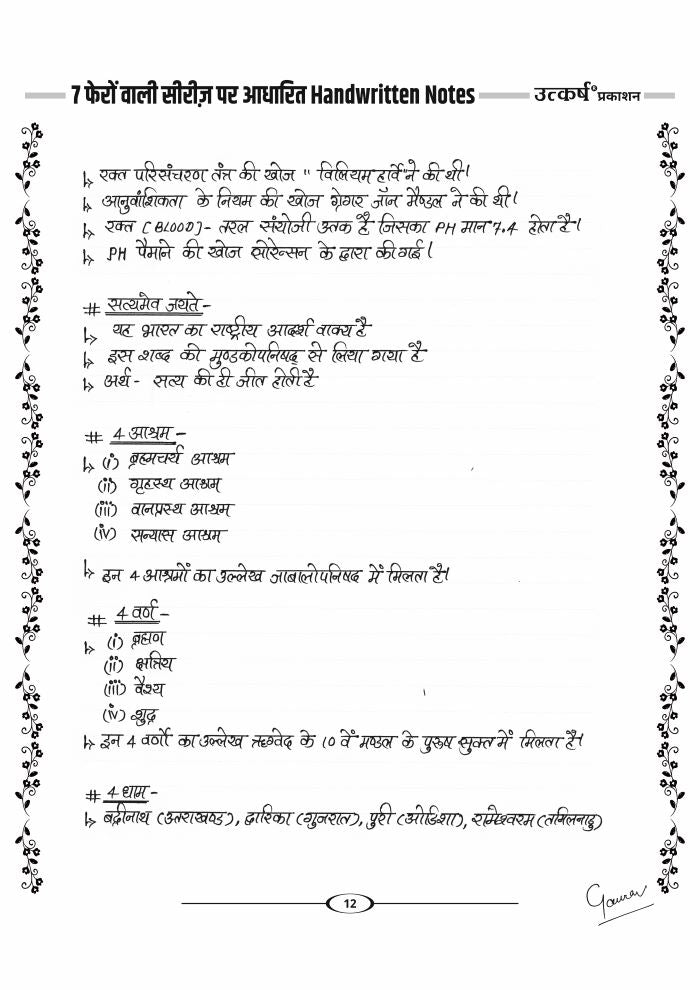 7 फेरों वाली सीरीज़ पर आधारित Handwritten Notes उत्कर्ष प्रकाशन
↳ रक्त परिसंचरण तंत्र की खोज " विलियम हार्वे ने की थी।
↳ आनुवांशिकता के नियम की खोज ग्रेगर जॉन मैण्डल ने की थी।
↳ रक्त [BLOOD]- तरल संयोजी उतक है जिसका PH मान 7.4 होता है।
↳ PH पैमाने की खोज सोरेन्सन के द्वारा की गई।
# सत्यमेव जयते -
↳ यह भारत का राष्ट्रीय आदर्श वाक्य है
↳ इस शब्द को मुण्डकोपनिषद से लिया गया है
↳ अर्थ - सत्य की ही जीत होती है
# 4 आश्रम -
↳ (i) ब्रह्मचर्य आश्रम
(ii) गृहस्थ आश्रम
(iii) वानप्रस्थ आश्रम
(iv) सन्यास आश्रम
↳ इन 4 आश्रमों का उल्लेख जाबालोपनिषद में मिलता है।
# 4 वर्ण -
↳ (i) ब्रह्मण
(ii) क्षत्रिय
(iii) वैश्य
(iv) शुद्र
↳ इन 4 वर्णों का उल्लेख ऋग्वेद के 10 वें मण्डल के पुरुष सुक्त में मिलता है।
# 4 धाम -
↳ बद्रीनाथ (उत्तराखण्ड), द्वारिका (गुजरात), पुरी (ओडिशा), रामेश्वरम (तमिलनाडु)
12
Gaurav